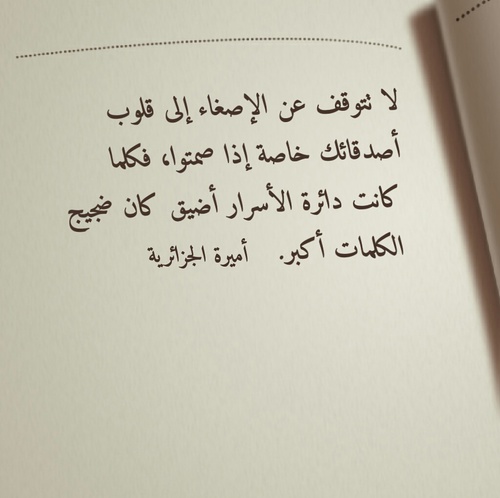 لا تتوقف عن الإصغاء إلى قلوب
أصدقائك خاصة إذا صمتوا، فكلما
كانت دائرة الأسرار أضيق كان ضجيج
الكلمات أكبر. أميرة الجزائرية